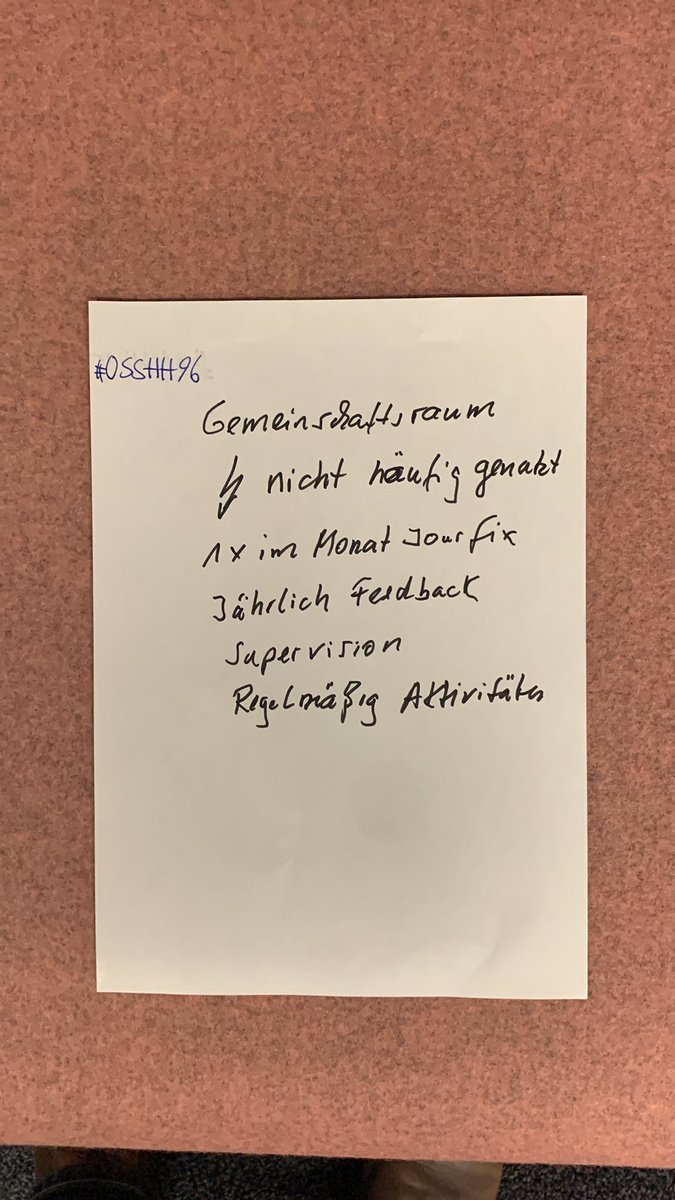 #OSSHH96
Gemeinschaftsraum
↯ nicht häufig genutzt
1x im Monat Jour fix
Jährlich Feedback
Supervision
Regelmäßig Aktivitäten